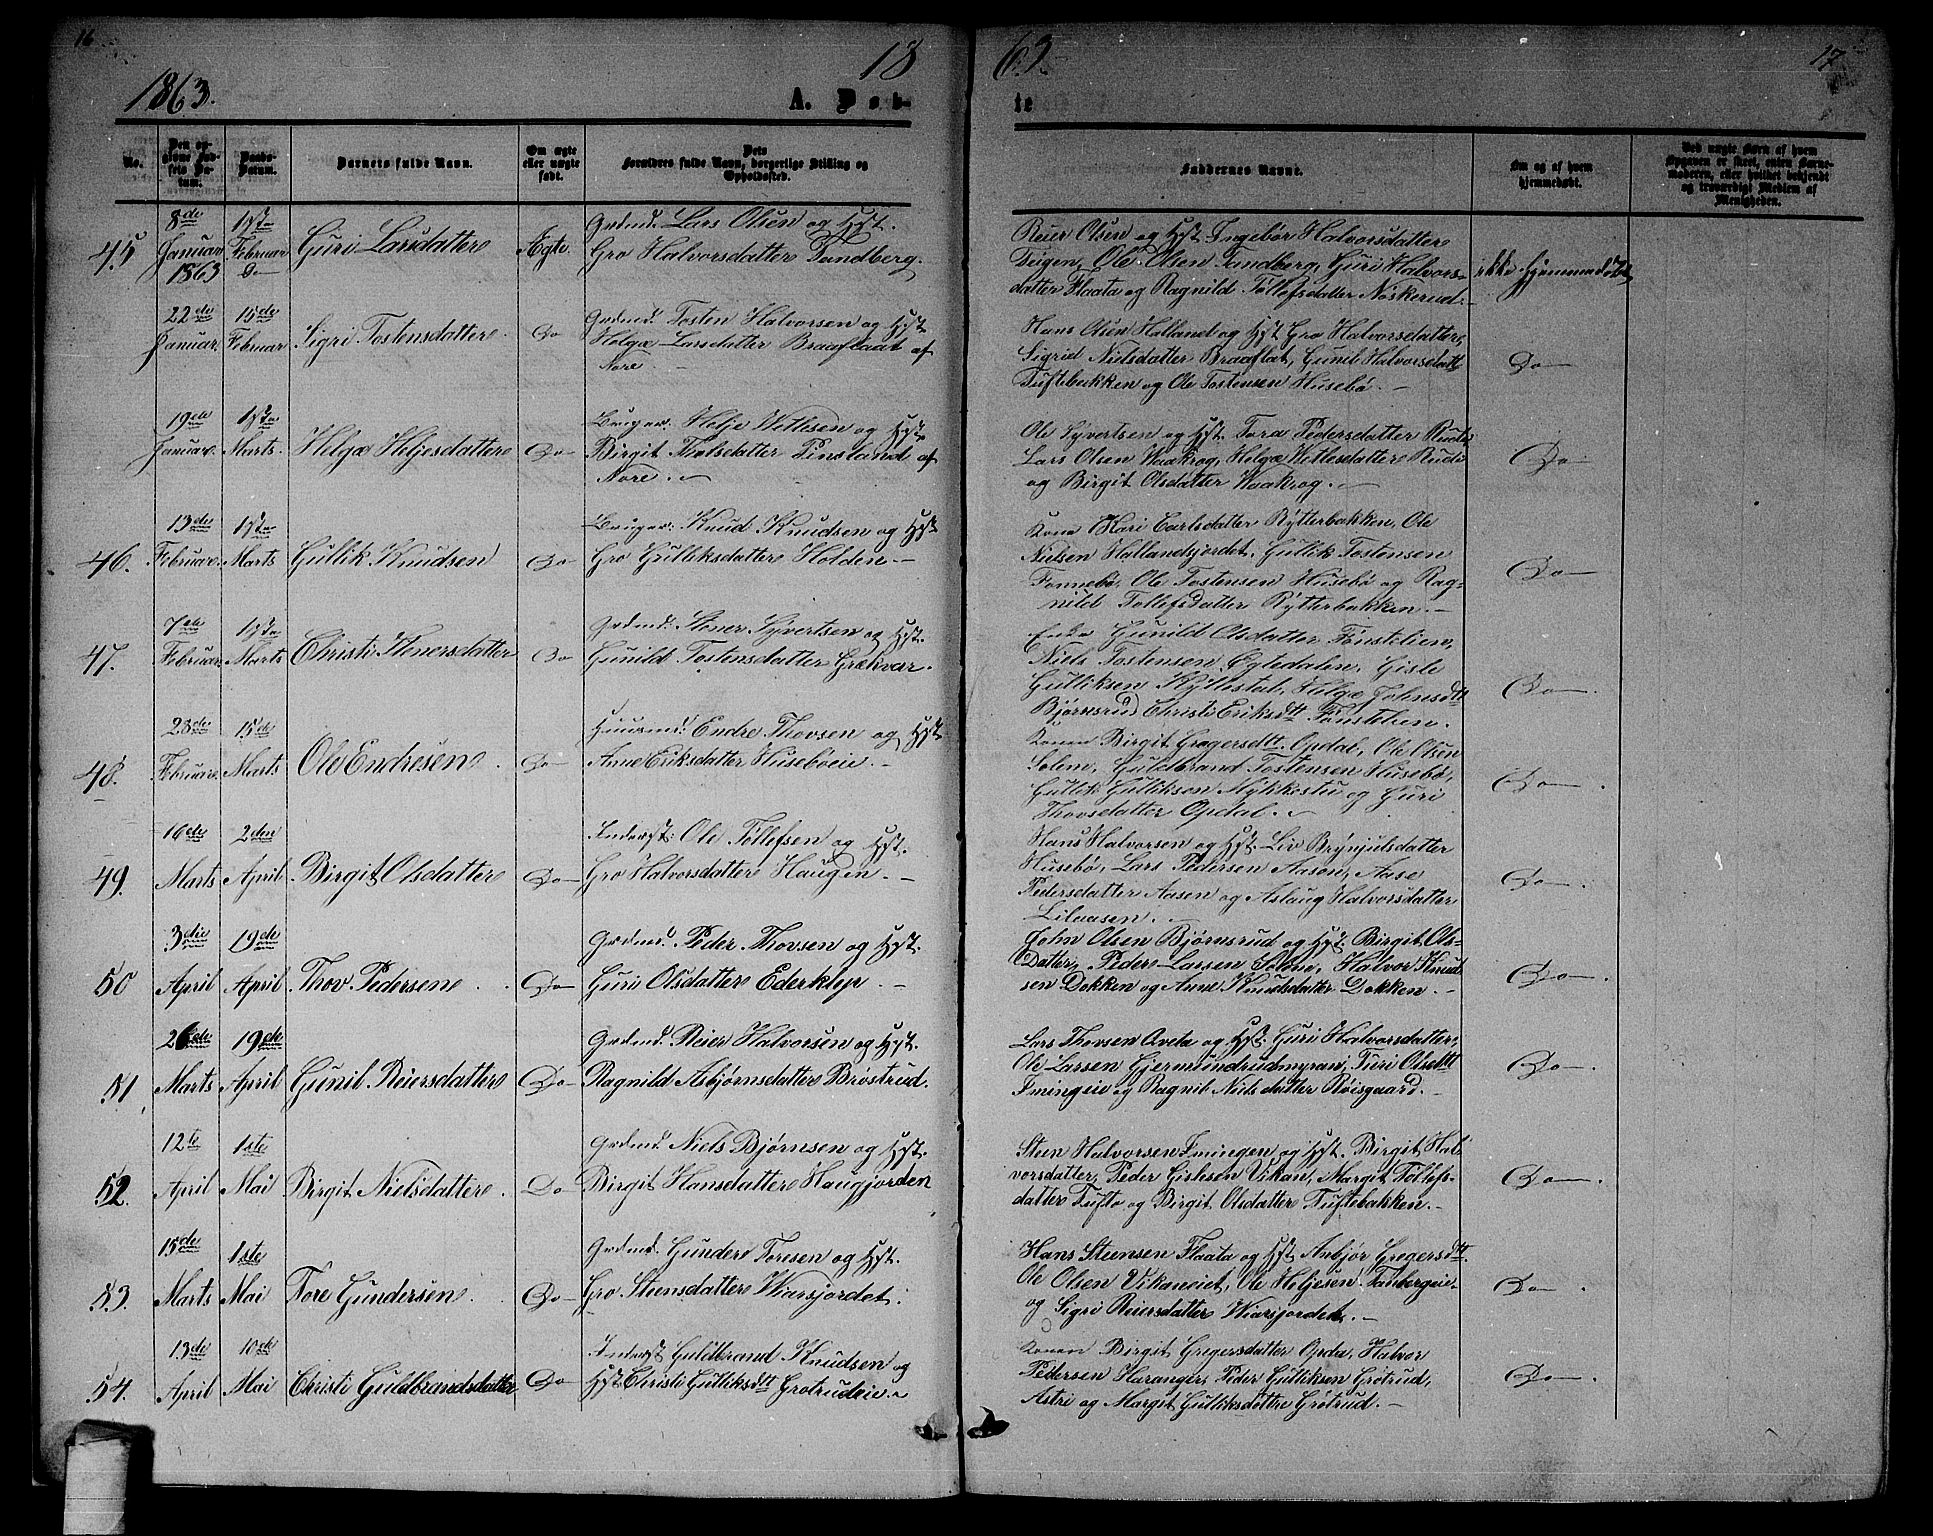 16
18
63.
17
1863.
A. Døb-
te
No.
Den opgivne Fødsels Datum.
Daabs-Datum.
Barnets fulde Navn.
Om ægte eller uægte født.
Dets Forældres fulde Navn, borgerlige Stilling og Opholdssted.
Faddernes Navne.
Om og af hvem hjemmedøbt.
Ved uægte Børn af hvem Opgaven er skeet, enten Barnemoderen, eller hvilket bekjendt og troværdigt Medlem af Menigheden.
45
8de Januar 1863
1ste Februar Do
Guri Larsdatter
Ægte
Grdmd. Lars Olsen og Hst.
Gro Halvorsdatter Tandberg.
Reier Olsen og Hst Ingebør Halvorsdatter
Teigen, Ole Olsen Tandberg, Guri Halvors-
datter Flaata og Ragnild Tollefsdatter Nøskerud.
ikke hjemmedøbt
22de Januar.
15de Februar
Sigri Tostensdatter
Do
Grdmd. Tosten Halvorsen og Hst
Helga Larsdatter Braaflaat af
Nore.
Hans Olsen Halland og Hst Gro Halvorsdatter,
Sigrid Nielsdatter Braaflat, Gunil Halvorsdatt
Tuftebakken og Ole Tostensen Husebø.
Do
19de Januar.
1ste Marts.
Helga Heljesdatter
Do
Bruger. Helje Wetlesen og Hst
Birgit Nore.
Ole Syvertsen og Hst. Tora Pedersdatter Rudi
Lars Olsen Waakrog, Helga Wetlesdatter Rudi
og Birgit Olsdatter Waakrog.
Do
46.
13de Februar.
1ste Marts
Gullik Knudsen
Do
Bruger. Knud Knudsen og Hst
Gro Gulliksdatter Holden
Kona Kari Carlsdatter Rytterbakken, Ole
Nielsen Hallandsjordet, Gullik Tostensen
Fonnebø, Ole Tostensen Husebø og Rag-
nild Tollefsdatter Rytterbakken.
Do
47.
7de Februar
1ste Marts
Christi Stenersdatter
Do
Grdmd. Stener Syvertsen og Hst.
Gunild Tostensdatter
Enke Gunild Olsdatter
Niels Tostensen Øgtedalen, Gisle
Gulliksen Kyllestal, Helga Johnsdtt
Bjørnsrud Christi Eriksdtt
Do
48.
28de Februar
15de Marts
Ole Endresen
Do
Huusmd. Endre Thovsen og Hst
Anne Eriksdatter Husebøeie.
Konen Birgit Gregersdtt. Opdal, Ole Olsen
Solem, Guldbrand Tostensen Husebø,
Gullik Gulliksen Mykkestu og Guri
Thovsdatter Opdal.
Do
49.
16de Marts
2den April
Birgit Olsdatter
Do
Inderst. Ole Tollefsen og Hst.
Gro Halvorsdatter Haugen.
Hans Halvorsen og Hst. Liv Brynjulsdatter
Husebø, Lars Pedersen Aasen, Aase
Pedersdatter Aasen og Aslaug Halvorsdatter
Liliaasen.
Do
50
3die April
19de April
Thov Pedersen
Do
Grdmd. Peder Thovsen og Hst.
Guri Olsdatter Ederklep
John Olsen Bjørnsrud og Hst. Birgit Ols-
datter, Peder Larsen Solem, Halvor Knud
sen Dokken og Anne Knudsdatter Dokken.
Do
51
26de Marts
19de April
Gunil Reiersdatter
Do
Grdmd. Reier Halvorsen og Hst.
Ragnild Asbjørnsdatter Brøstrud.
Lars Thovsen Qveta og Hst. Guri Halvorsdatter,
Ole Larsen Gjermundrudmyran, Turi Olsdtt
Imingeie og Ragnil Nielsdatter Røisgaard.
Do
52.
12te April
1ste Mai
Birgit Nielsdatter
Do
Grdmd. Niels Bjørnsen og Hst.
Birgit Hansdatter Haugjorden
Steen Halvorsen Imingen og Hst. Birgit Hal
vorsdatter, Peder Gislesen Vikan, Margit Tollefs-
datter Tufto og Birgit Olsdatter Tuftebakken.
Do
53.
15de Marts
1ste Mai
Tore Gundersen
Do
Grdmd. Gunder Toresen og Hst.
Gro Steensdatter Wiarsjordet.
Hans Steensen Flaata og Hst Anbjør Gregersdtt.
Ole Olsen Vikaneiet, Ole Heljesen Tanbergeie
og Sigri Reiersdatter Wiarsjordet.
Do
54.
13de April
10de Mai
Christi Guldbrandsdatter
Do
Inderst Guldbrand Knudsen og
Hst Christi Gulliksdtt Grøtrudeie.
Konen Birgit Gregersdatter Opda, Halvor
Pedersen Haranger, Peder Gulliksen Grøtrud,
Astri og Margit Gulliksdøttre Grøtrud.
Do